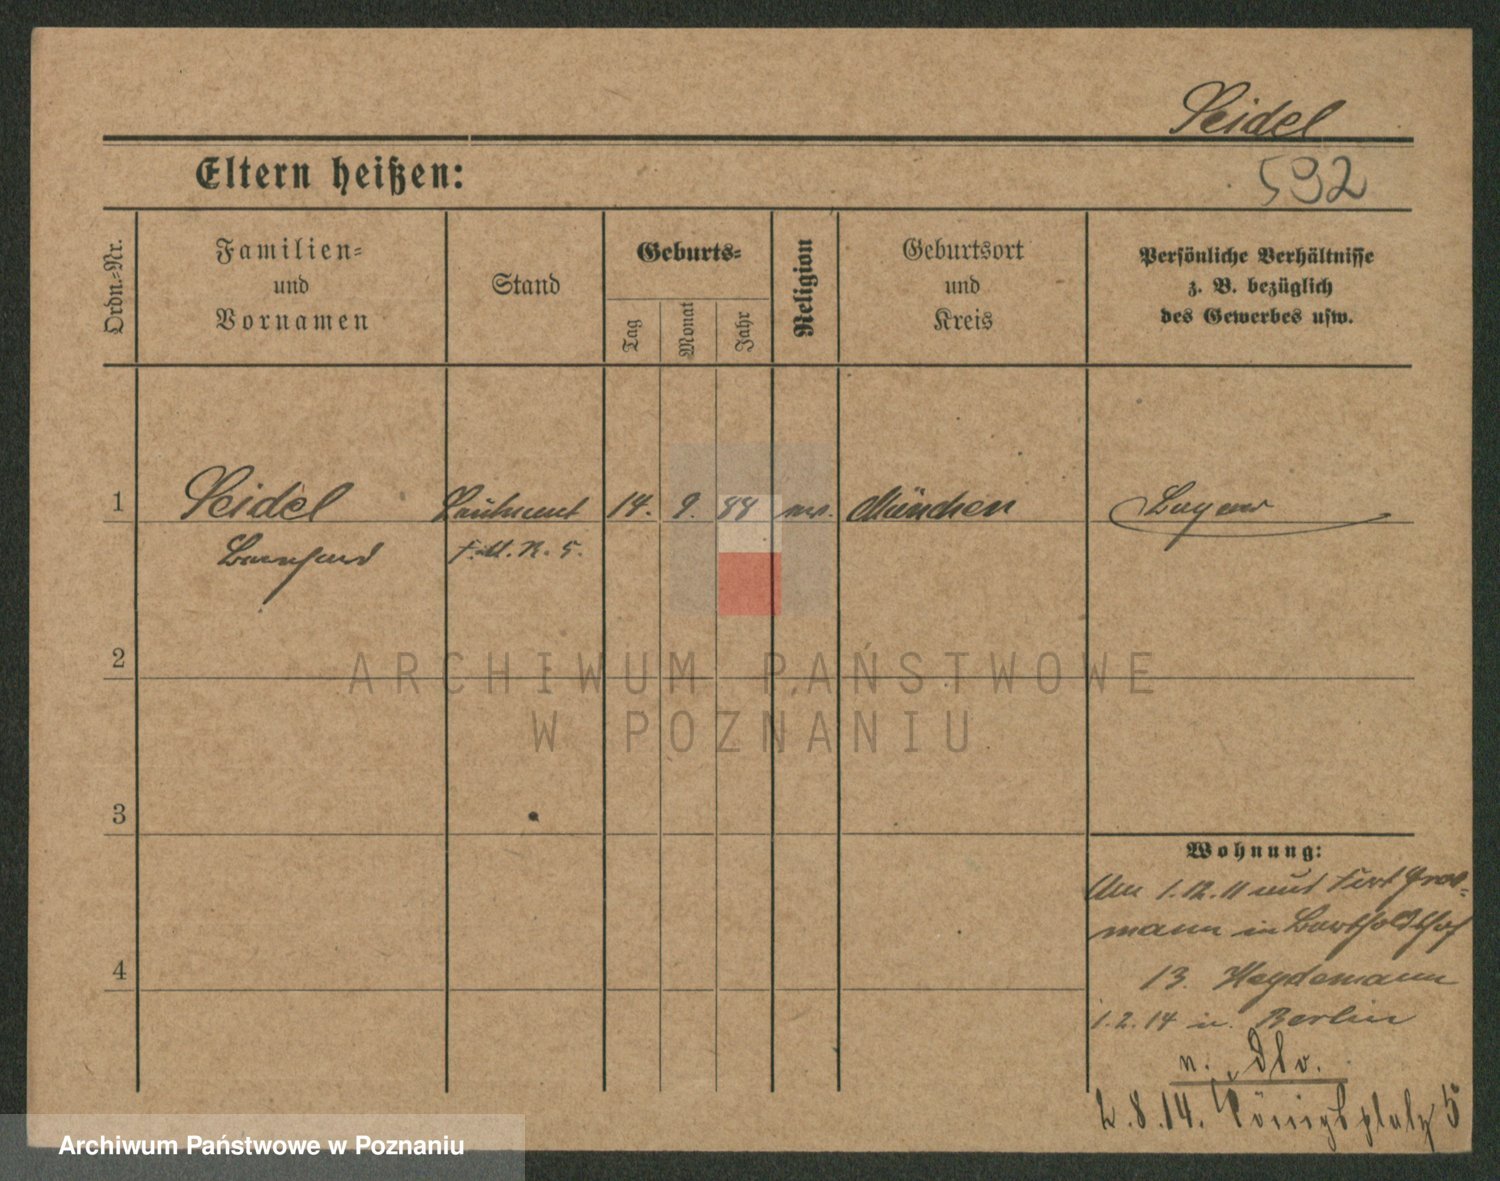 Seidel
Eltern heißen:
592
Ordn.=Nr.
Familien=
und
Vornamen
Stand
Geburts=
Tag
Monat
Jahr
Religion
Geburtsort
und
Kreis
Persönliche Verhältnisse
z. B. bezüglich
des Gewerbes usw.
1 Seidel Leutnant 14. 9. 88 München Bayer
Bernhard F.A.R. 5.
2
ARCHIWUM PAŃSTWOWE
W POZNANIU
3
Wohnung:
1.12.11 Gross=
mann in Bartholdshof
4
13. Heydemann
1.2.14 n. Berlin
n. Dbv.
2.8.14. Königsplatz 5
Archiwum Państwowe w Poznaniu